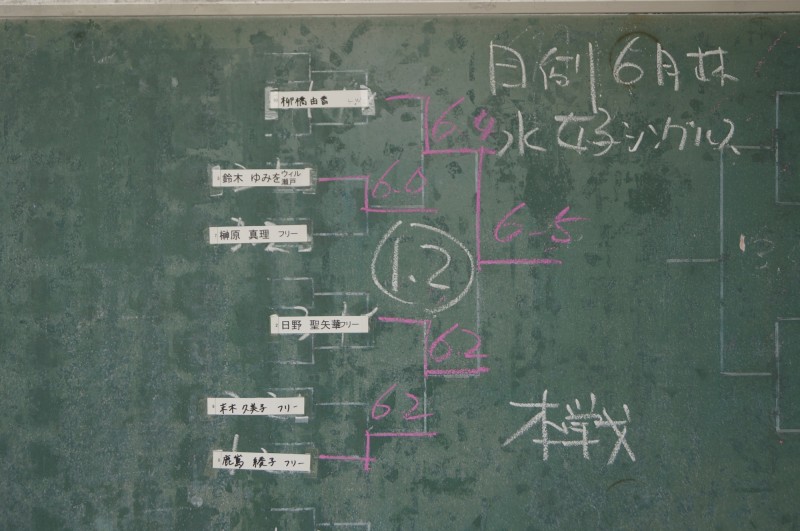 月例 6月 杯
女子シングルス
柳橋由貴
6.4
鈴木 ゆみを ウィル瀬戸
6.0
榊原 真理 フリー
6-5
1.2
日野 聖矢華 フリー
6.2
久美子 フリー
6.2
本戦
綾子 フリー